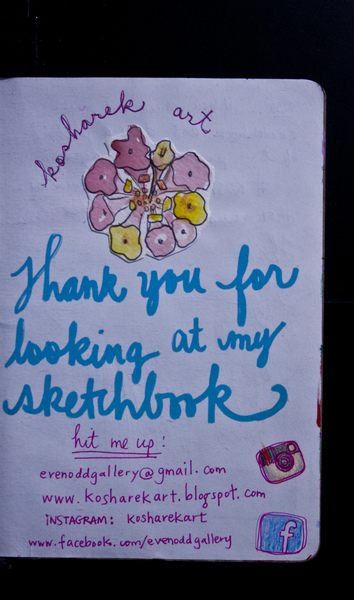 kosharek art
Thank you for
looking at my
sketchbook
hit me up:
evenoddgallery@gmail.com
www.kosharekart.blogspot.com
INSTAGRAM: kosharekart
www.facebook.com/evenoddgallery
f